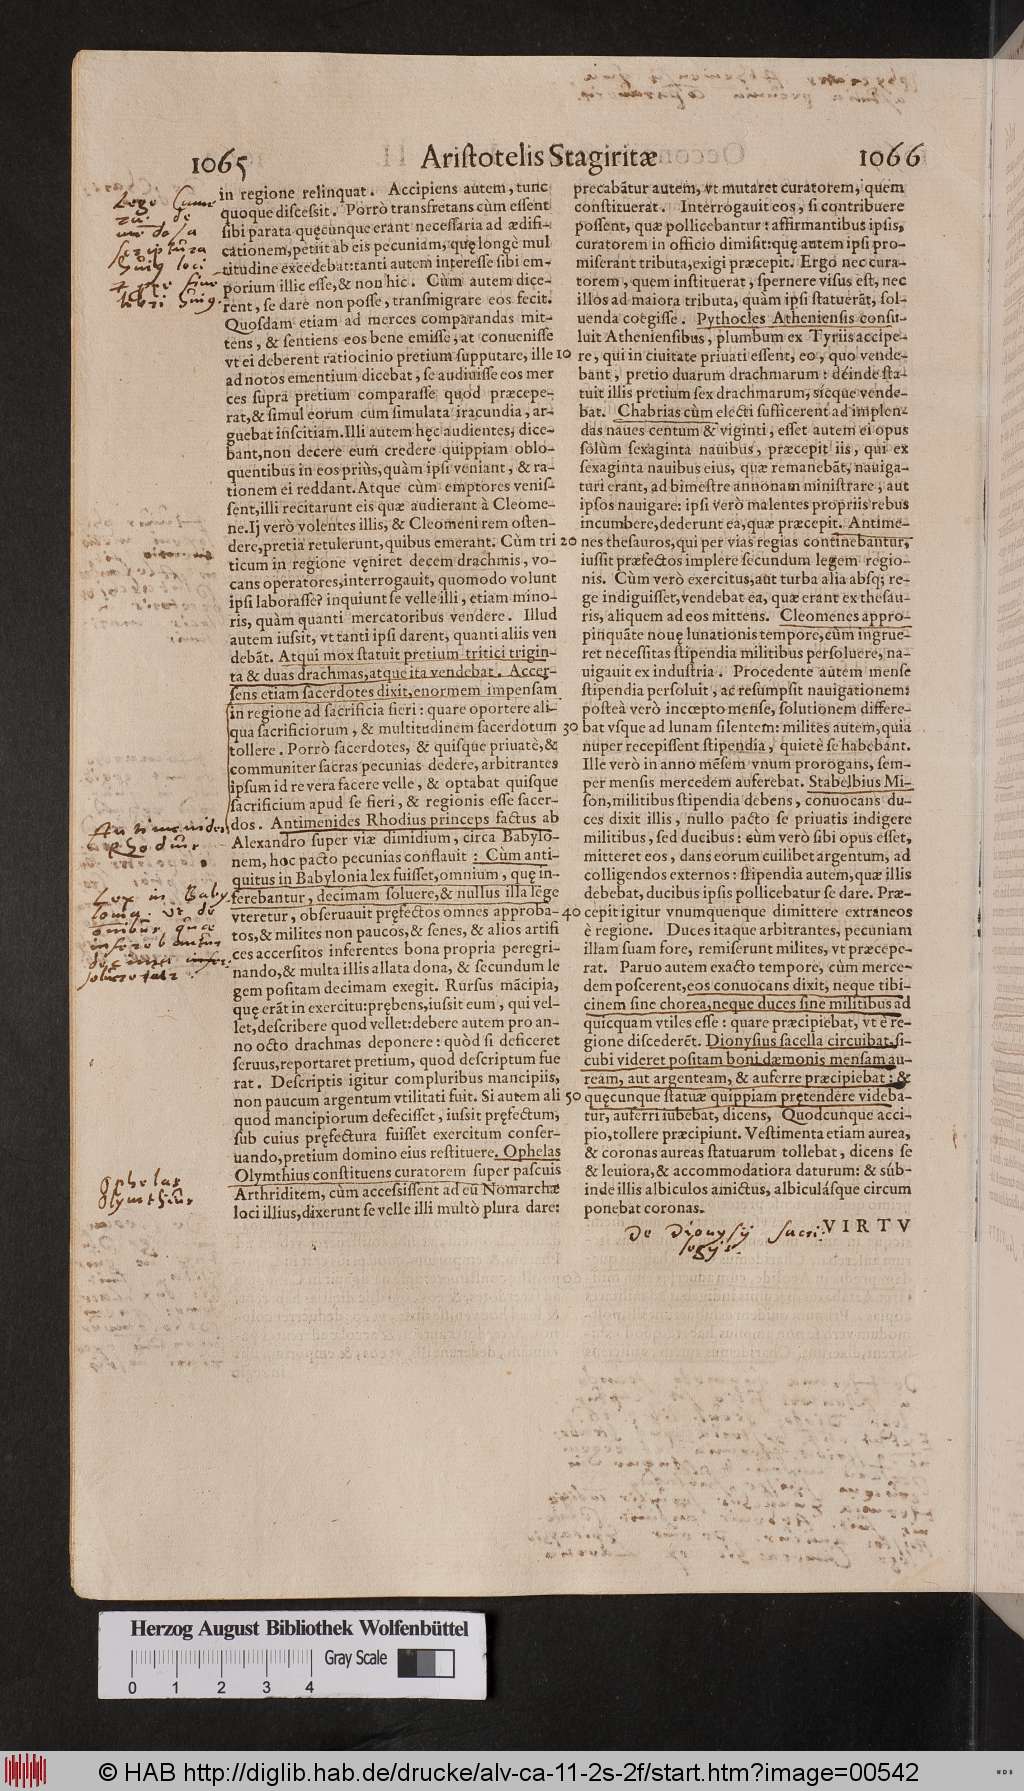 1065
Aristotelis Stagiritæ
1066
in regione relinquat. Accipiens autem, tunc
quoque discessit. Porrò transfretans cùm essent
sibi parata quęcunque erant necessaria ad ædifi-
cationem, petiit ab eis pecuniam, quę longè mul
titudine excedebat: tanti autem interesse sibi em-
porium illic esse, & non hic. Cùm autem dice-
rent, se dare non posse, transmigrare eos fecit.
Quosdam etiam ad merces comparandas mit-
tens, & sentiens eos bene emisse, at conuenisse
vt ei deberent ratiocinio pretium supputare, ille
ad notos ementium dicebat, se audiuisse eos mer
ces supra pretium comparasse quod præcepe-
rat, & simul eorum cum simulata iracundia, ar-
guebat inscitiam. Illi autem hęc audientes, dice-
bant, non decere eum credere quippiam oblo-
quentibus in eos priùs, quàm ipsi veniant, & ra-
tionem ei reddant. Atque cùm emptores venis-
sent, illi recitarunt eis quæ audierant à Cleome-
ne. Ij verò volentes illis, & Cleomeni rem osten-
dere, pretia retulerunt, quibus emerant. Cùm tri
ticum in regione vęniret decem drachmis, vo-
cans operatores, interrogauit, quomodo volunt
ipsi laborasse? inquiunt se velle illi, etiam mino-
ris, quàm quanti mercatoribus vendere. Illud
autem iussit, vt tanti ipsi darent, quanti aliis ven
debāt. Atqui mox statuit pretium tritici trigin-
ta & duas drachmas, atque ita vendebat. Accer-
sens etiam sacerdotes dixit, enormem impensam
in regione ad sacrificia fieri: quare oportere ali-
qua sacrificiorum, & multitudinem sacerdotum
tollere. Porrò sacerdotes, & quisque priuatè, &
communiter sacras pecunias dedere, arbitrantes
ipsum id re vera facere velle, & optabat quisque
sacrificium apud se fieri, & regionis esse sacer-
dos. Antimenides Rhodius princeps factus ab
Alexandro super viæ dimidium, circa Babylo-
nem, hoc pacto pecunias conflauit: Cùm anti-
quitus in Babylonia lex fuisset, omnium, quę in-
ferebantur, decimam soluere, & nullus illa lege
vteretur, obseruauit pręfectos omnes approba-
tos, & milites non paucos, & senes, & alios artifi
ces accersitos inferentes bona propria peregri-
nando, & multa illis allata dona, & secundum le
gem positam decimam exegit. Rursus mācipia,
quę erāt in exercitu: prębens, iussit eum, qui vel-
let, describere quod vellet: debere autem pro an-
no octo drachmas deponere: quòd si deficeret
seruus, reportaret pretium, quod descriptum fue
rat. Descriptis igitur compluribus mancipiis,
non paucum argentum vtilitati fuit. Si autem ali
quod mancipiorum defecisset, iussit pręfectum,
sub cuius pręfectura fuisset exercitum conser-
uando, pretium domino eius restituere. Ophelas
Olymthius constituens curatorem super pascuis
Arthriditem, cùm accessissent ad eū Nomarchæ
loci illius, dixerunt se velle illi multò plura dare:
10
20
30
40
50
precabātur autem, vt mutaret curatorem, quem
constituerat. Interrogauit eos, si contribuere
possent, quæ pollicebantur: affirmantibus ipsis,
curatorem in officio dimisit: quę autem ipsi pro-
miserant tributa, exigi præcepit. Ergo nec cura-
torem, quem instituerat, spernere visus est, nec
illos ad maiora tributa, quàm ipsi statuerāt, sol-
uenda coëgisse. Pythocles Atheniensis consu-
luit Atheniensibus, plumbum ex Tyriis accipe-
re, qui in ciuitate priuati essent, eo, quo vende-
bant, pretio duarum drachmarum: deinde sta-
tuit illis pretium sex drachmarum, sicque vende-
bat. Chabrias cùm electi sufficerent ad implen-
das naues centum & viginti, esset autem ei opus
solùm sexaginta nauibus, præcepit iis, qui ex
sexaginta nauibus eius, quæ remanebāt, nauiga-
turi erant, ad bimestre annonam ministrare, aut
ipsos nauigare: ipsi verò malentes propriis rebus
incumbere, dederunt ea, quæ præcepit. Antime-
nes thesauros, qui per vias regias continebantur,
iussit præfectos implere secundum legem regio-
nis. Cùm verò exercitus, aut turba alia absq; re-
ge indiguisset, vendebat ea, quæ erant ex thesau-
ris, aliquem ad eos mittens. Cleomenes appro-
pinquāte nouę lunationis tempore, cùm ingrue-
ret necessitas stipendia militibus persoluere, na-
uigauit ex industria. Procedente autem mense
stipendia persoluit, ac resumpsit nauigationem:
posteà verò incœpto mense, solutionem differe-
bat vsque ad lunam silentem: milites autem, quia
nuper recepissent stipendia, quietè se habebant.
Ille verò in anno mēsem vnum prorogans, sem-
per mensis mercedem auferebat. Stabelbius Mi-
son, militibus stipendia debens, conuocans du-
ces dixit illis, nullo pacto se priuatis indigere
militibus, sed ducibus: cùm verò sibi opus esset,
mitteret eos, dans eorum cuilibet argentum, ad
colligendos externos: stipendia autem, quæ illis
debebat, ducibus ipsis pollicebatur se dare. Præ-
cepit igitur vnumquenque dimittere extraneos
è regione. Duces itaque arbitrantes, pecuniam
illam suam fore, remiserunt milites, vt præcepe-
rat. Paruo autem exacto tempore, cùm merce-
dem poscerent, eos conuocans dixit, neque tibi-
cinem sine chorea, neque duces sine militibus ad
quicquam vtiles esse: quare præcipiebat, vt è re-
gione discederēt. Dionysius sacella circuibat, si-
cubi videret positam boni dæmonis mensam au-
ream, aut argenteam, & auferre præcipiebat: &
quęcunque statuæ quippiam prętendere videba-
tur, auferri iubebat, dicens, Quodcunque acci-
pio, tollere præcipiunt. Vestimenta etiam aurea,
& coronas aureas statuarum tollebat, dicens se
& leuiora, & accommodatiora daturum: & súb-
inde illis albiculos amictus, albiculásque circum
ponebat coronas.
VIRTV
Antimenides
Rhodius
Lex in Baby
lonia. vt de
omibus quæ
Ophelas
Olymthius
de Dionysij sacri
legijs.
Herzog August Bibliothek Wolfenbüttel
Gray Scale
0 1 2 3 4
© HAB http://diglib.hab.de/drucke/alv-ca-11-2s-2f/start.htm?image=00542